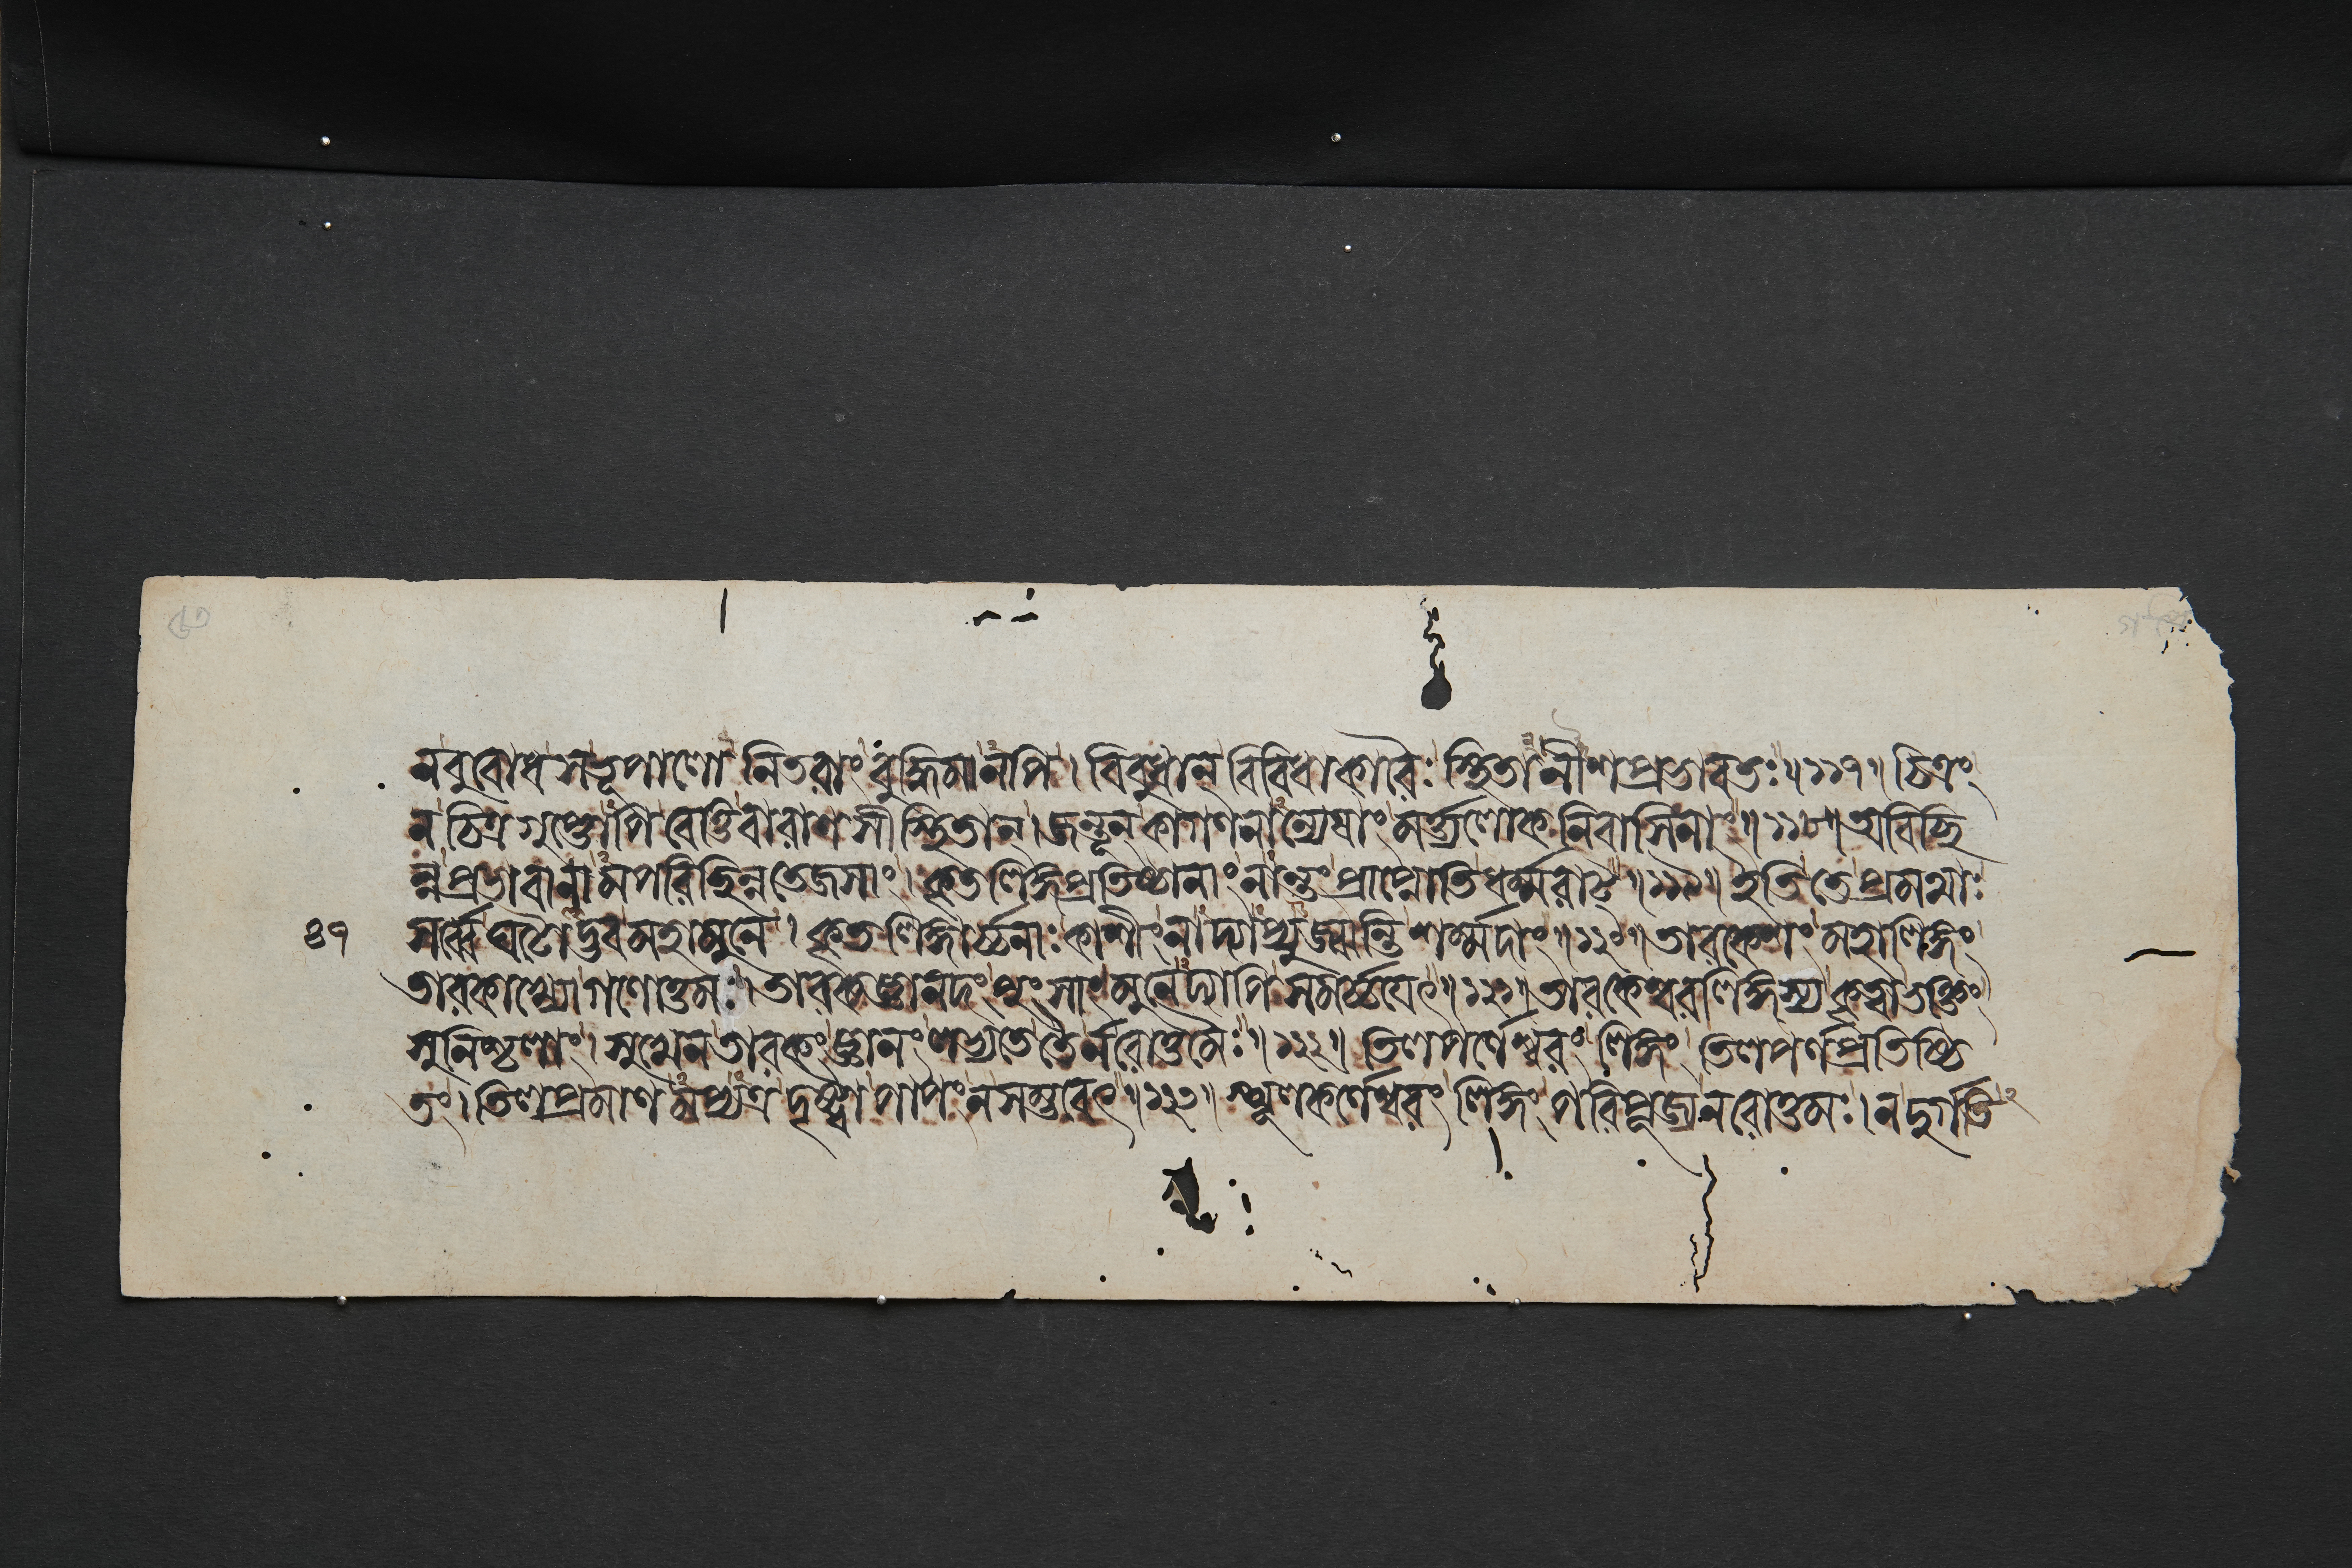 ন বুবোধ স ভূপালো নিতরাং বুদ্ধিমানপি । বিবুধান্ বিবিধাকারৈঃ স্থিতানীশপ্রভাবতঃ॥১১৭॥ চিত্রং
ন চিত্রগুপ্তোপি বেত্তি বারাণসীস্থিতান্। জন্তূন্ কা গণনান্যেষাং মর্ত্ত্যলোকনিবাসিনাং॥১১৮॥ অবিচ্ছি
ন্নপ্রভাবানামপরিচ্ছিন্নতেজসাং। কৃতলিঙ্গপ্রতিষ্ঠানাং নান্তং প্রাপ্নোতি ধর্ম্মরাট্॥১১৯॥ ইতি তে প্রমথাঃ
৪৭ সর্ব্বে ঘটোদ্ভব মহামুনে । কৃতলিঙ্গার্চ্চনাঃ কাশীং নাদ্যাপ্যুজ্ঝন্তি শর্ম্মদাং॥১২০॥ তারকেশং মহালিঙ্গং
তারকাখ্যো গণোত্তমঃ। তারকজ্ঞানদং পুংসাং মুনেদ্যাপি সমর্চ্চয়েৎ॥১২১॥ তারকেশ্বরলিঙ্গস্য কৃত্বা ভক্তিং
সুনিশ্চলাং। সুখেন তারকং জ্ঞানং লভ্যতে তৈর্নরোত্তমৈঃ॥১২২॥ তিলপর্ণেশ্বরং লিঙ্গং তিলপর্ণপ্রতিষ্ঠি
তং। তিলপ্রমাণমপ্যত্র দৃষ্ট্বা পাপং ন সম্ভবেৎ॥১২৩॥ স্থূলকর্ণেশ্বরং লিঙ্গং পরিপূজ্য নরোত্তমঃ। ন দুর্গতি